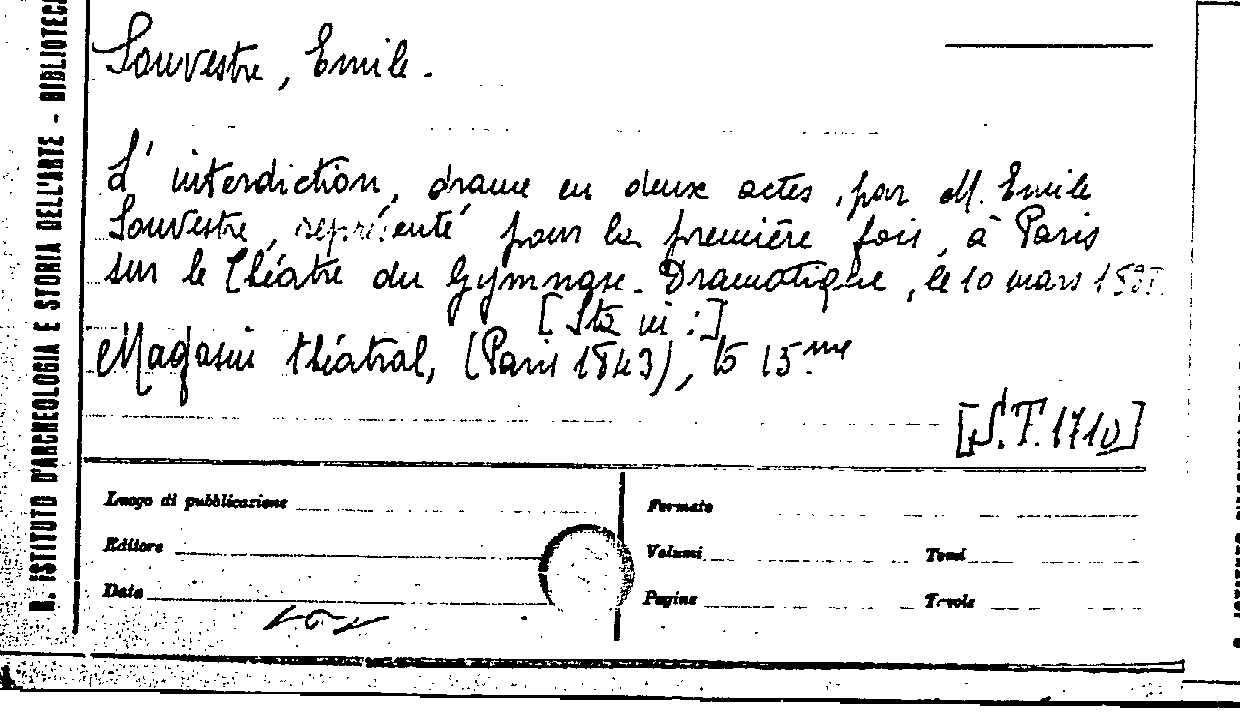 R. ISTITUTO D'ARCHEOLOGIA E STORIA DELL'ARTE - BIBLIOTECA
Souvestre, Emile.
L'interdiction, drame en deux actes, par M. Emile
Souvestre, représenté pour la première fois, à Paris
sur le Théatre du Gymnase-Dramatique, le 10 mars
[Sta in:]
Magasin théatral, (Paris 1843), to 15.me
[S.T.1710]
Luogo di pubblicazione
Formato
Editore
Volumi
Tomi
Data
Pagine
Tavole